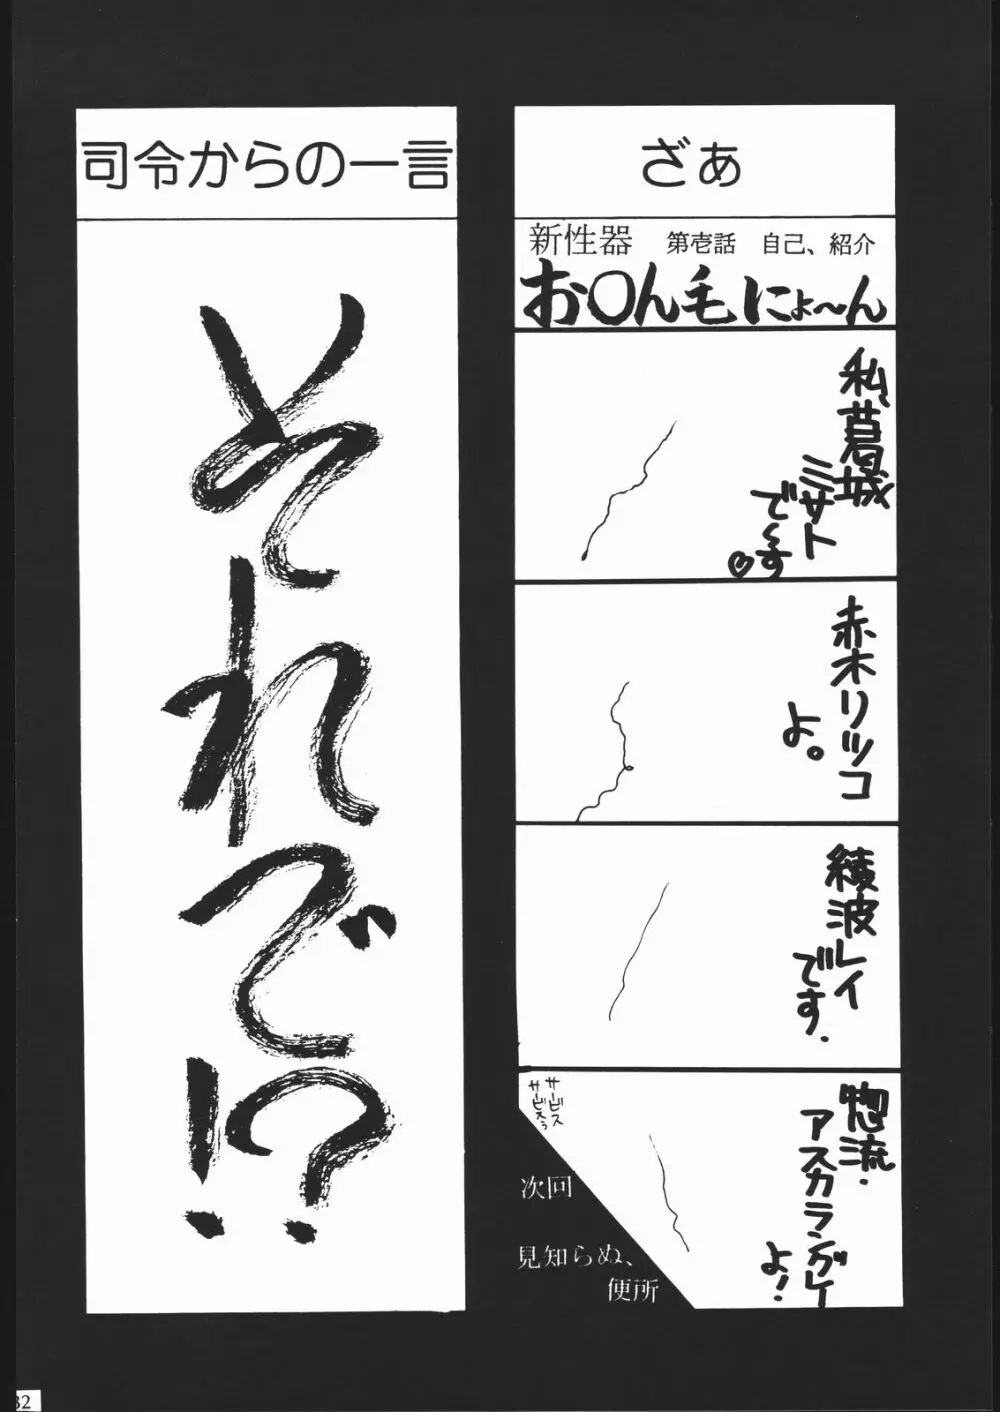 ざぁ
新性器 第壱話 自己、紹介
お〇ん毛にょ〜ん
私葛城
ミサト
で〜す♡
赤木リツコ
よ。
綾波レイ
です.
惣流・
アスカラングレー
よ!
サービス
サービスぅ
次回
見知らぬ、
便所
司令からの一言
それで!?
32